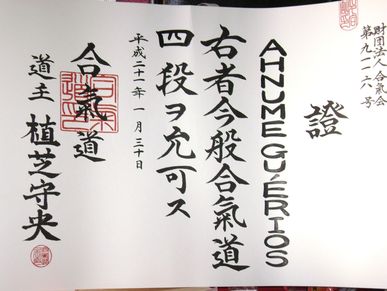 財団法人 合氣会
第九一一六号
證
AHNUME GUÉRIOS
右者今般合氣道
四段ヲ允可ス
平成二十一年 一月 三十日
合氣道
道主 植芝守央